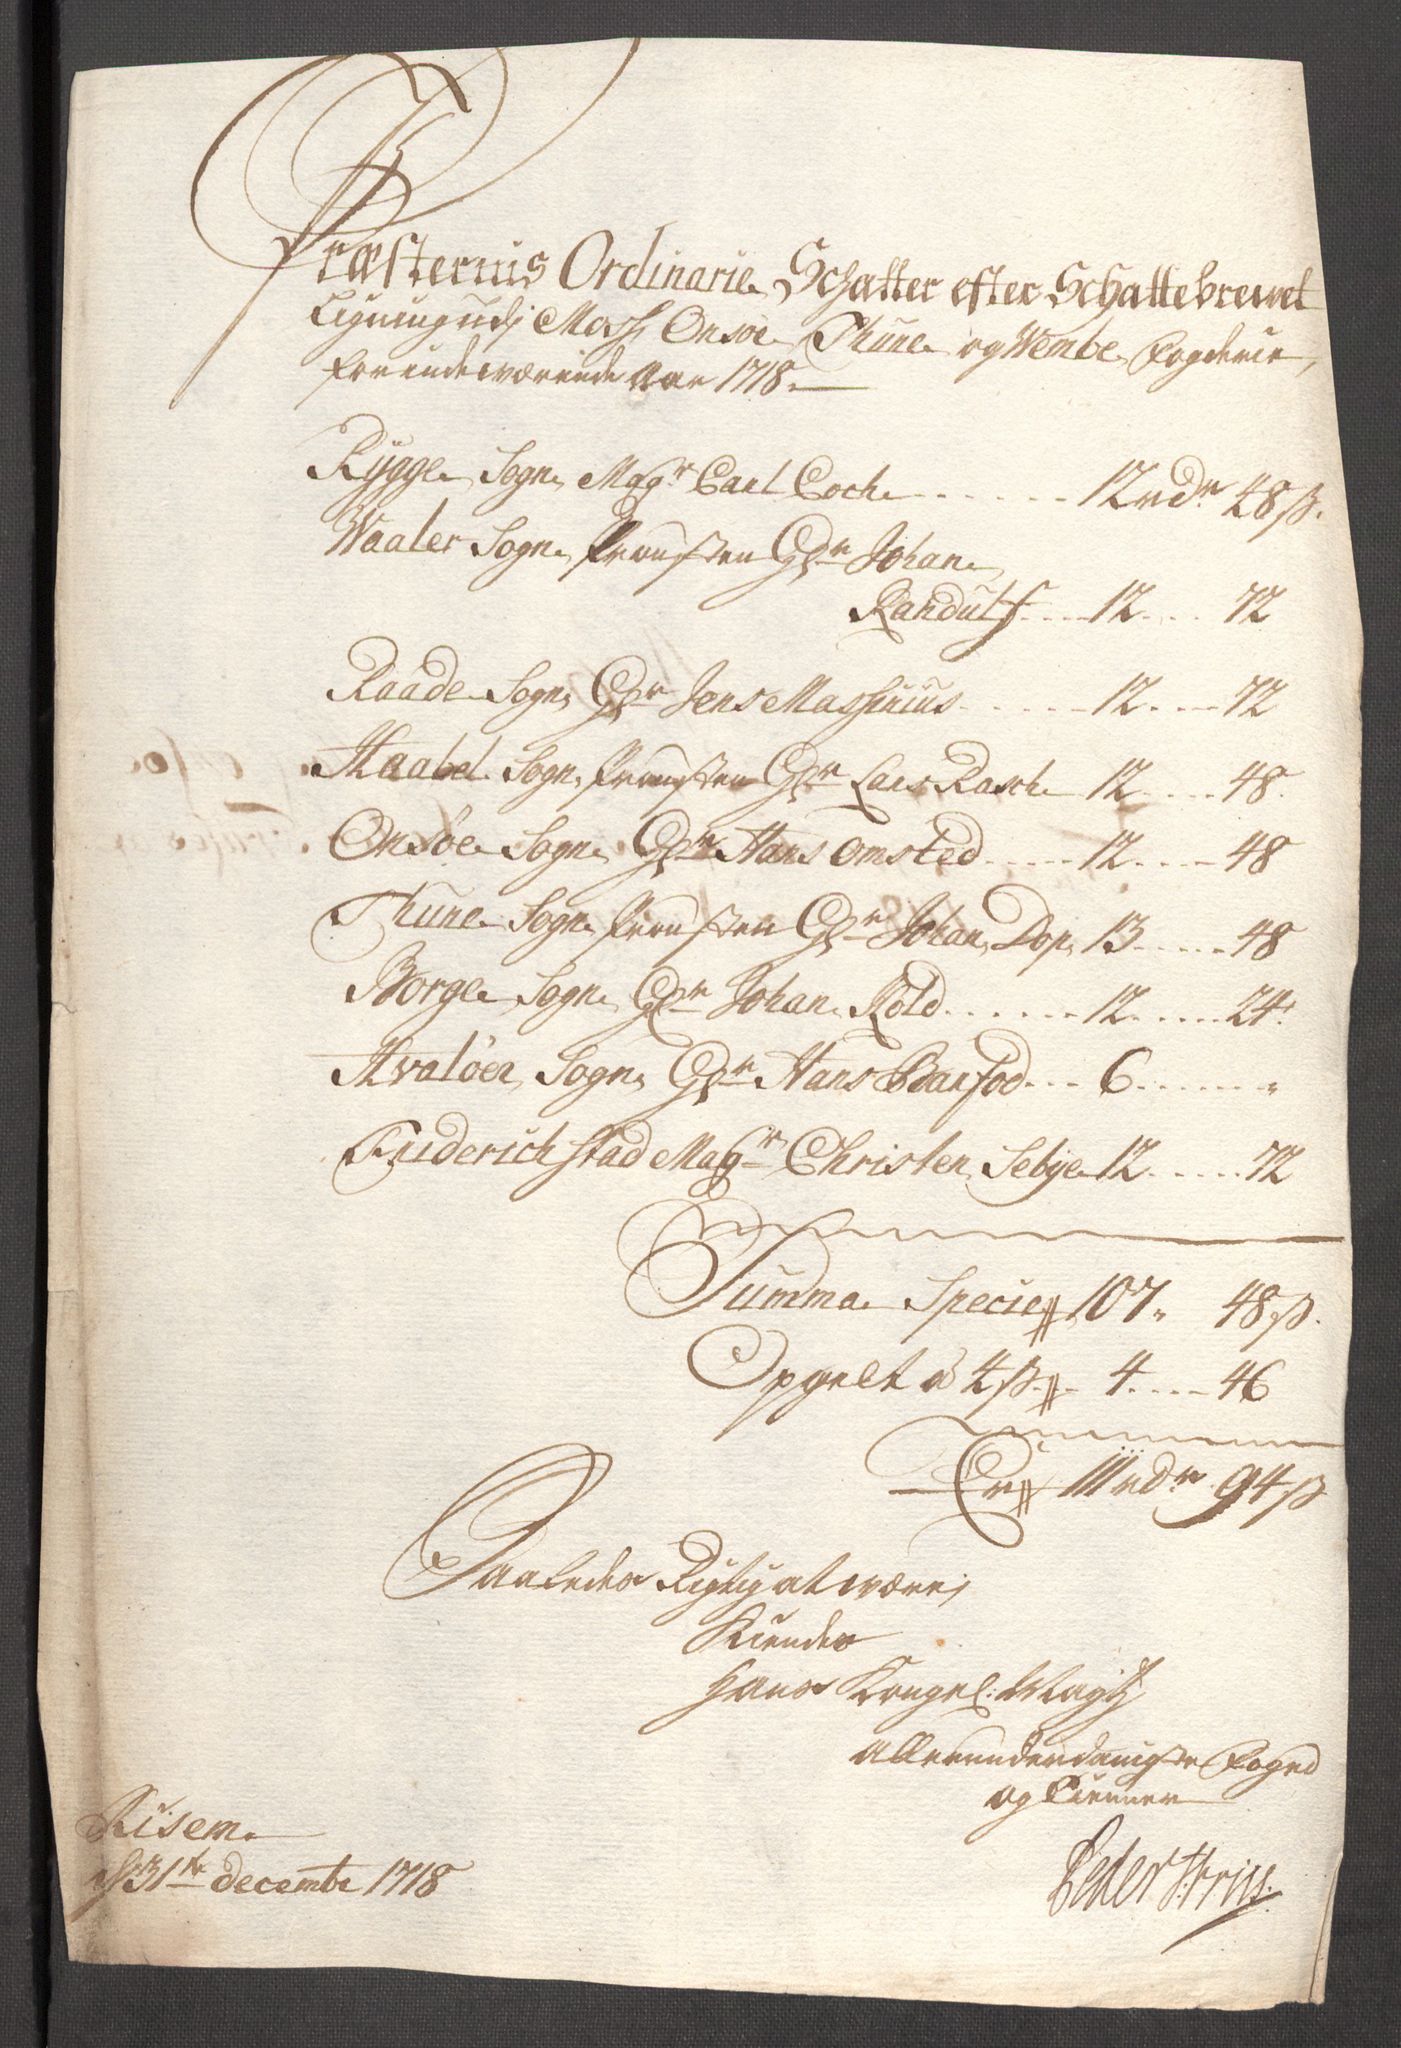 Præsternis Ordinarie Schatter efter Schattebrewet
Ligning udj Moss Onsøe Thune og Wembe Fogderie,
for indeværende Aar 1718.
Rygge Sogn Magr Carl Coch 12 rdr 48 ß.
Waaler Sogn Provsten Hr Johan
Randulf 12 72
Raade Sogn Hr Jens Massinius 12 72
Haabel Sogn Provsten Hr Lars Rasch 12 48
Onsøe Sogn Hr Hans Omsted 12 48
Thune Sogn Provsten Hr Johan Dop 13 48
Borge Sogn Hr Johan Rold 12 24
Hvaløer Sogn Hr Hans Barfod 6 "
Friderichstad Magr Christen Sebye 12 72
Summa Specie 107 48 ß.
Opgelt à 4 ß 4 46
Er 111 rdr 94 ß
Saaledes Rigtig at være,
Kiender
Hans Kongel: Mayts
allerunderdanigste Foged
og Tienner
Risem
d 31te decembr 1718
Peder Friis